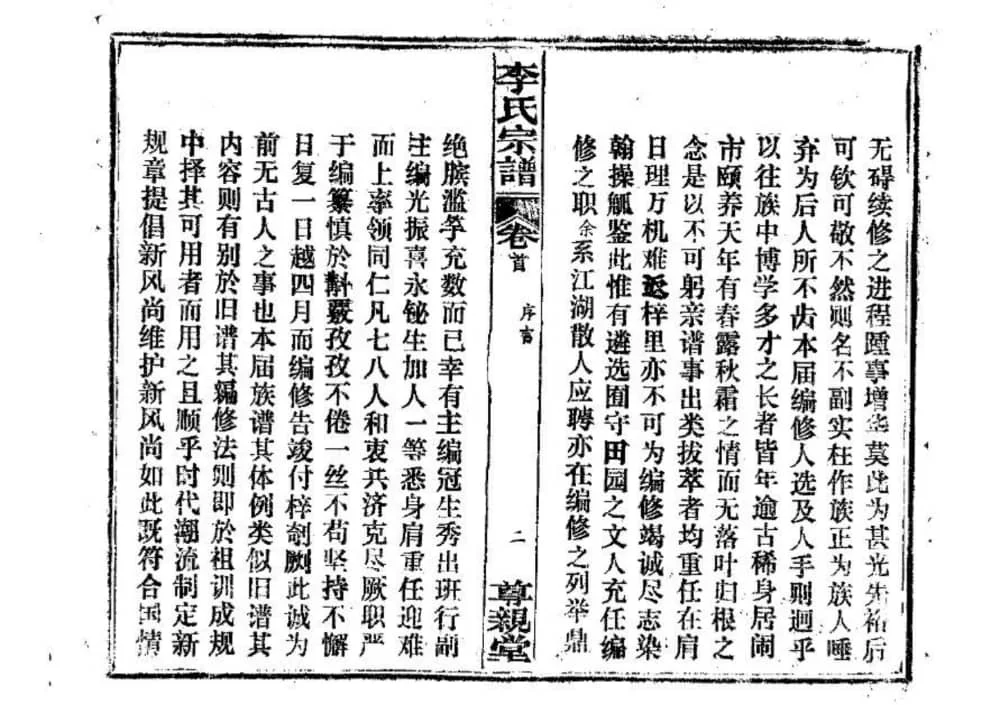 无碍续修之进程踵事增华莫此为甚光先裕后
可钦可敬不然则名不副实枉作族正为族人唾
弃为后人所不齿本届编修人选及人手则迥乎
以往族中博学多才之长者皆年逾古稀身居闹
市颐养天年有春露秋霜之情而无落叶归根之
念是以不可躬亲谱事出类拔萃者均重任在肩
日理万机难返梓里亦不可为编修竭诚尽志染
翰操觚鉴此惟有遴选囿守田园之文人充任编
修之职余系江湖散人应聘亦在编修之列举鼎
李氏宗譜
卷首
序言
二
尊親堂
绝膑滥竽充数而已幸有主编冠生秀出班行副
主编光振喜永铋生加人一等悉身肩重任迎难
而上率领同仁凡七八人和衷共济克尽厥职严
于编纂慎於斠覈孜孜不倦一丝不苟坚持不懈
日复一日越四月而编修告竣付梓剞劂此诚为
前无古人之事也本届族谱其体例类似旧谱其
内容则有别於旧谱其编修法则即於祖训成规
中择其可用者而用之且顺乎时代潮流制定新
规章提倡新风尚维护新风尚如此既符合国情